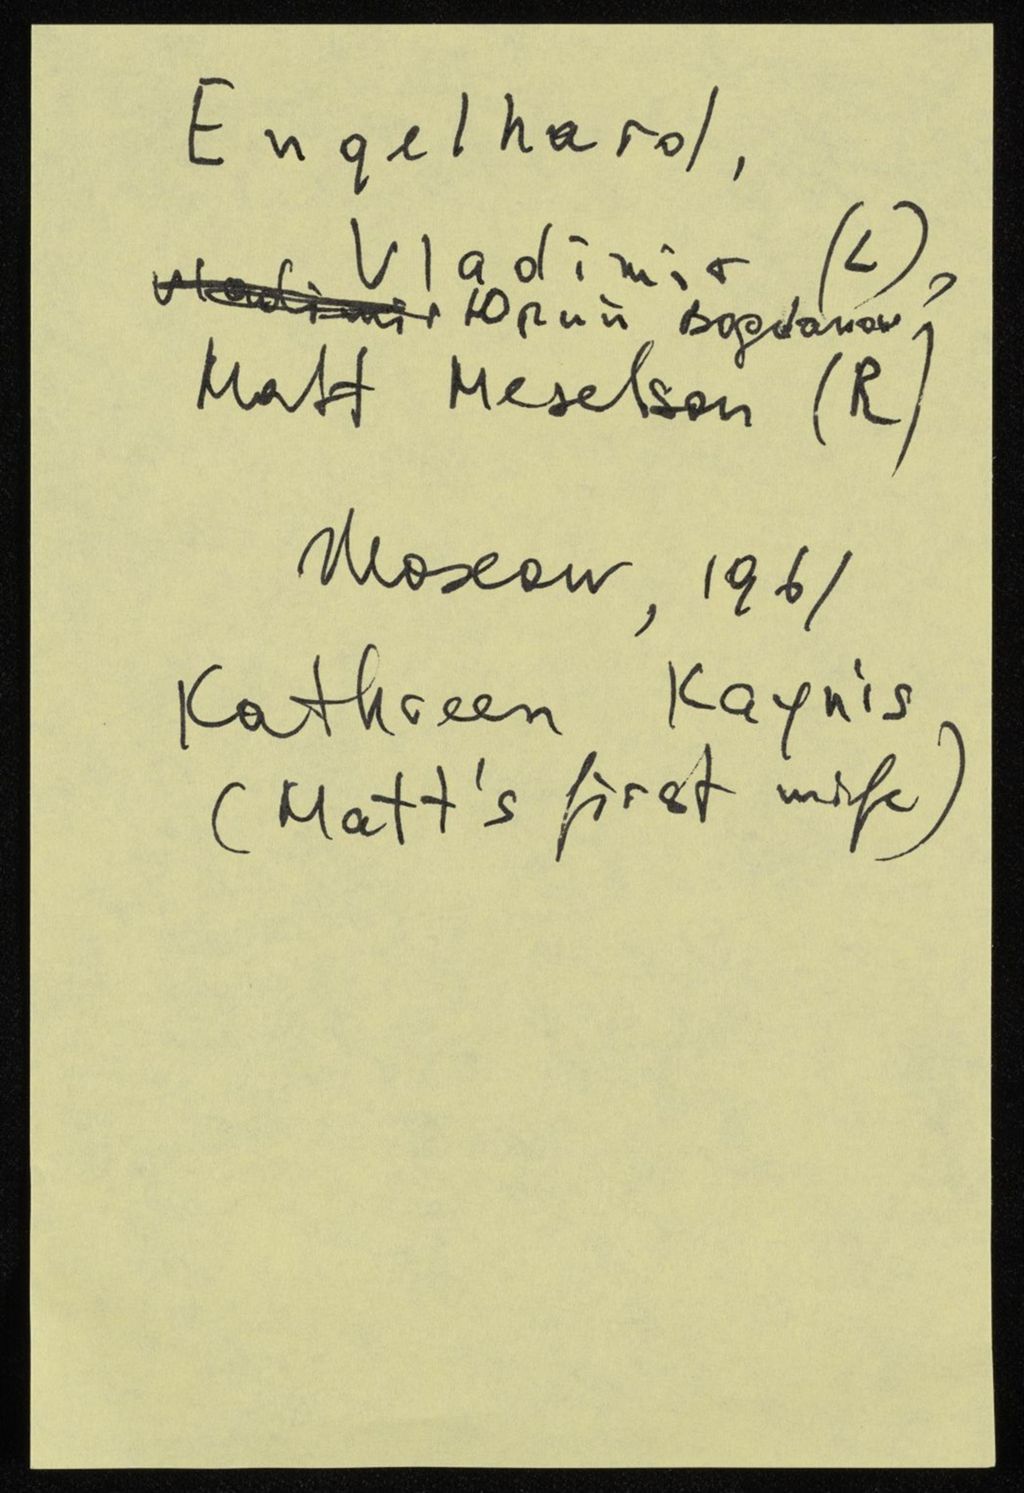 Engelhard,
Vladimir (L),
Vladimir Юрий Bogdanov,
Matt Meselson (R)
Moscow, 1961
Kathreen Kaynis
(Matt's first wife)